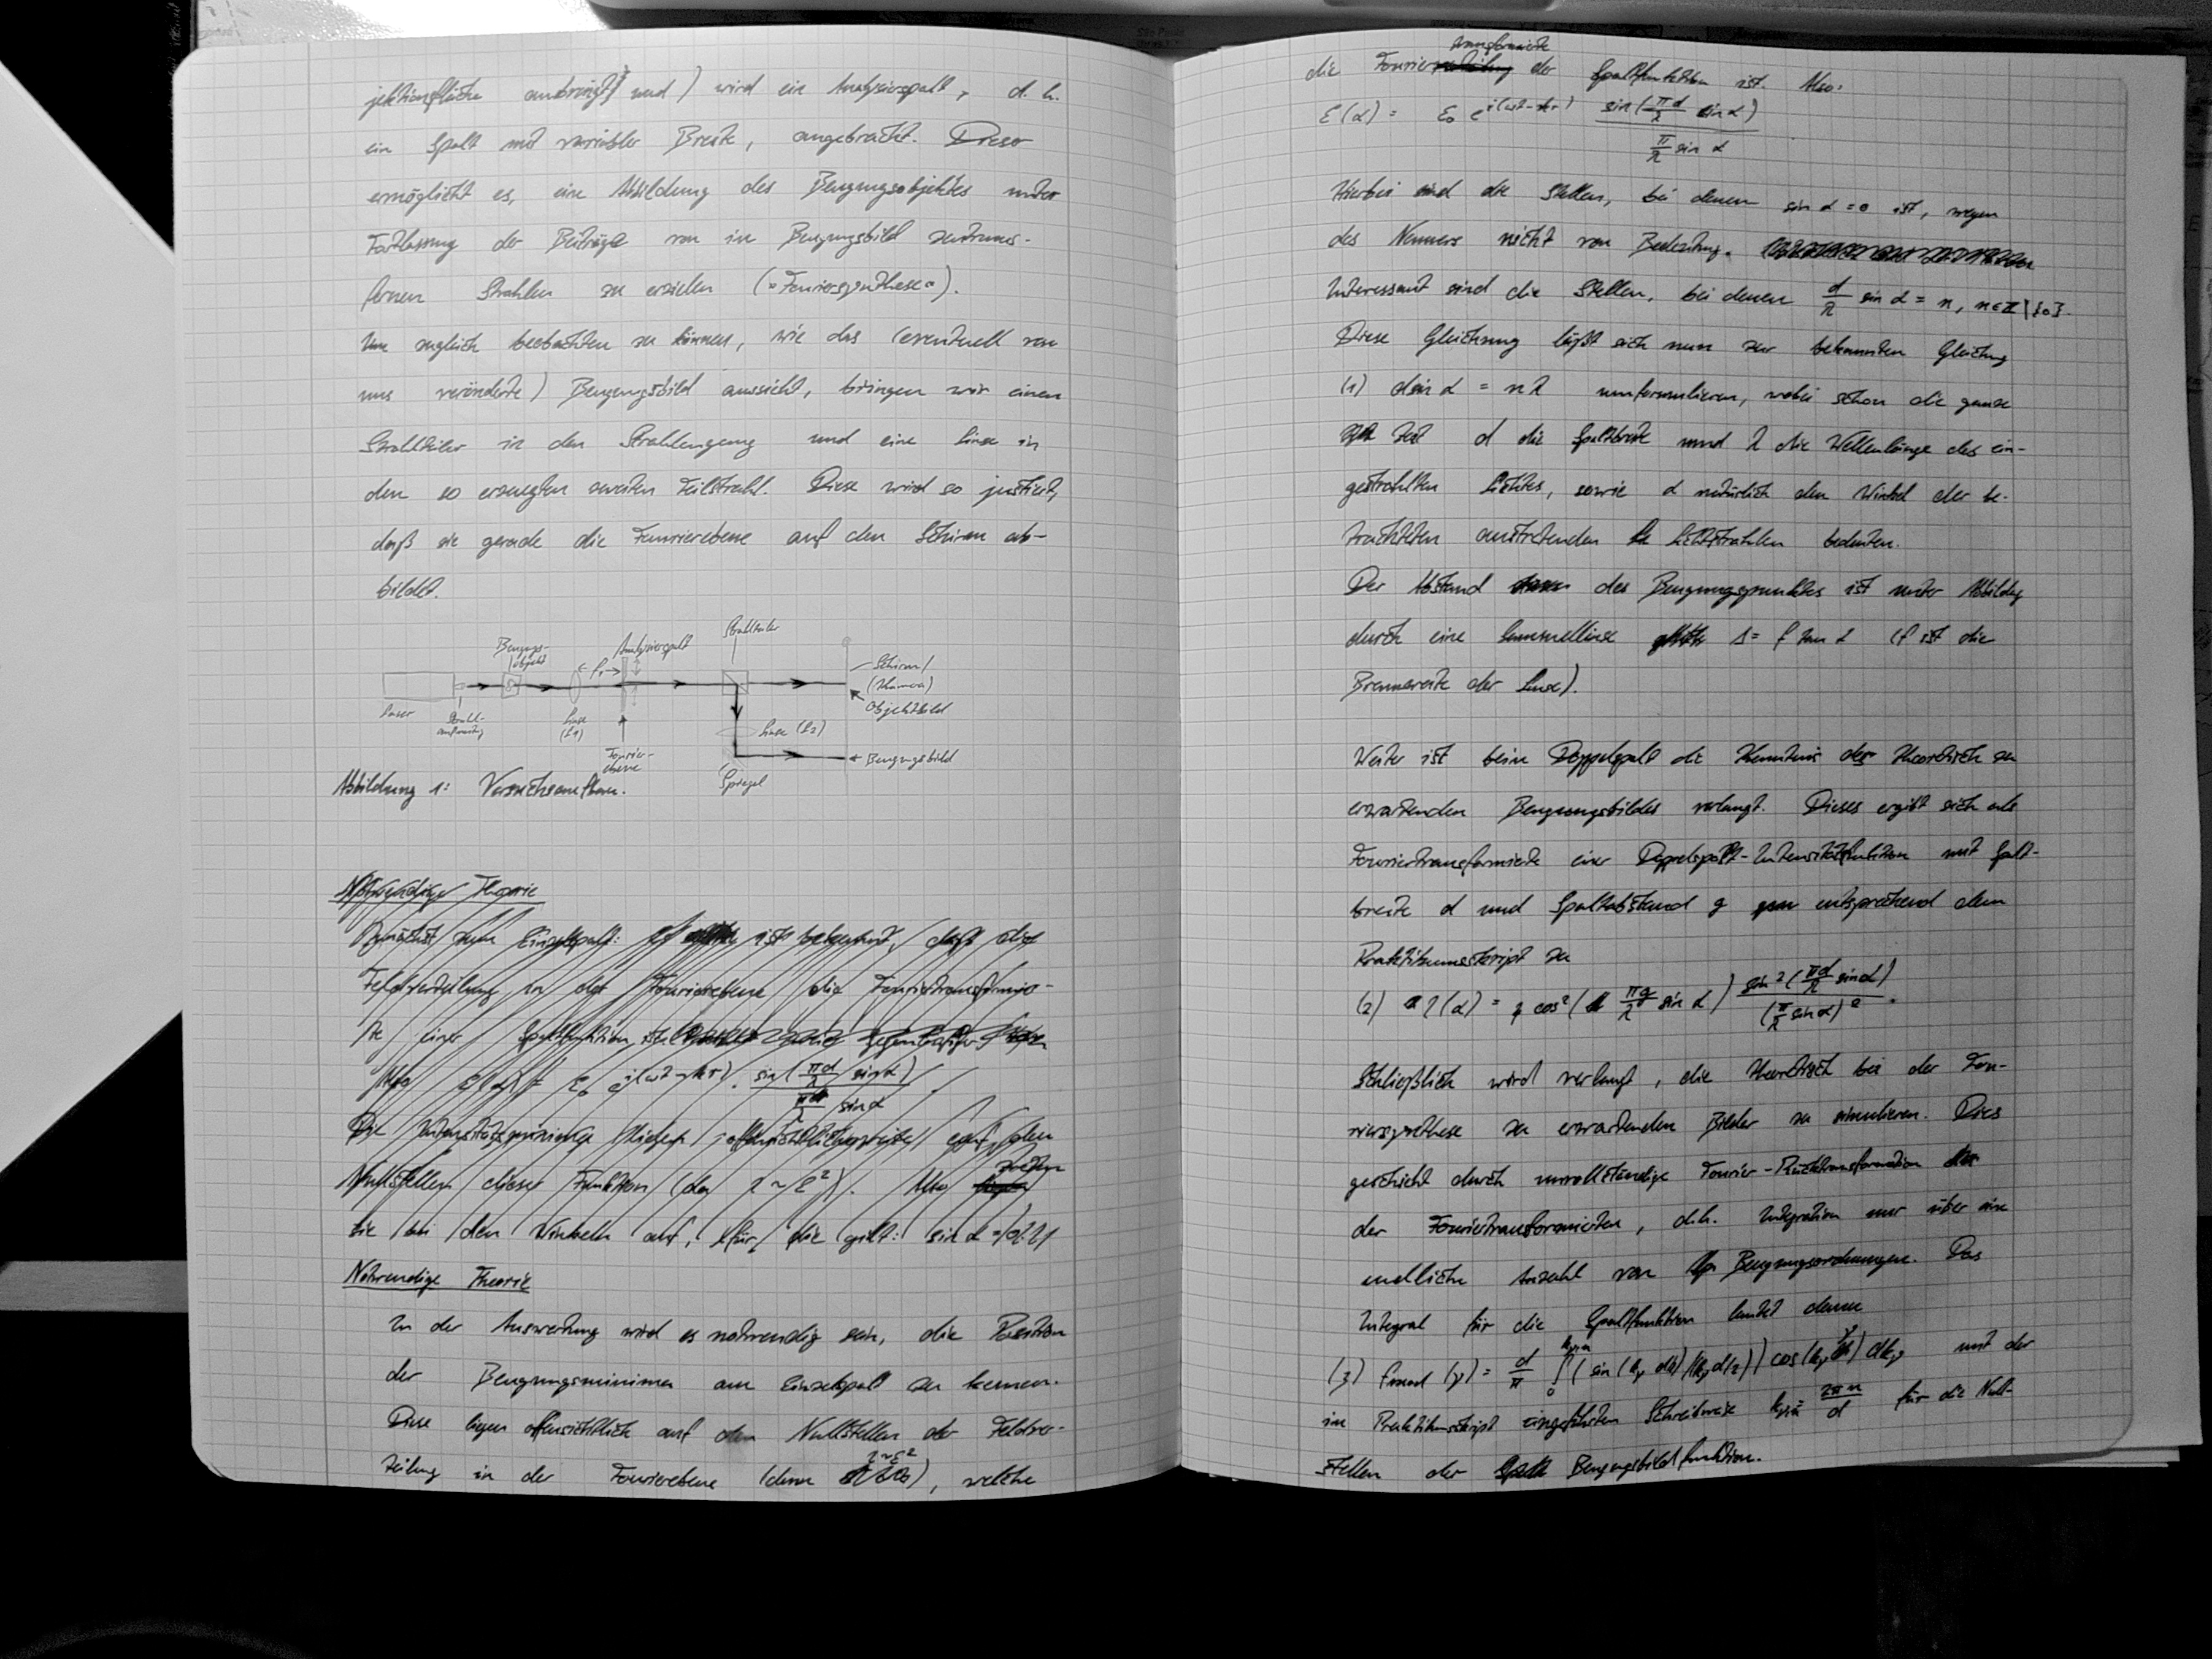 jektionsfläche anbringt) und) wird ein Analysierspalt, d. h.
ein Spalt mit variabler Breite, angebracht. Dieser
ermöglicht es, eine Abbildung des Beugungsobjektes unter
Fortlassung der Beiträge von im Beugungsbild zentrums-
fernen Strahlen zu erzielen („Fouriersynthese“).
Um zugleich beobachten zu können, wie das (eventuell von
uns veränderte) Beugungsbild aussieht, bringen wir einen
Strahlteiler in den Strahlengang und eine Linse in
den so erzeugten zweiten Teilstrahl. Diese wird so justiert,
daß sie gerade die Fourierebene auf den Schirm ab-
bildet.
Strahlteiler
Beugungs-
objekt
f₁
Analysierspalt
Schirm/
(Kamera)
Objektbild
Laser
Strahl-
aufweitung
Linse
(L1)
Fourier-
ebene
Linse (L2)
Spiegel
Beugungsbild
Abbildung 1: Versuchsaufbau.
Notwendige Theorie
Zunächst zum Einzelspalt: Es ist bekannt, daß die
Feldverteilung in der Fourierebene die Fouriertransformier-
te einer Spaltfunktion ist
Also E(α) = E₀ e^{i(ωt-kr)} · sin(πd/λ sin α) / πd/λ sin α
Die Intensitätsminima liegen offensichtlicherweise auf den
Nullstellen dieser Funktion (da I ~ E²). Also treten
sie bei den Winkeln auf, für die gilt: sin α =
Notwendige Theorie
In der Auswertung wird es notwendig sein, die Position
der Beugungsminima am Einzelspalt zu kennen.
Diese liegen offensichtlich auf den Nullstellen der Feldver-
teilung in der Fourierebene (denn I~E²), welche
die Fouriertransformierte der Spaltfunktion ist. Also:
E(α) = E₀ e^{i(ωt-kr)} sin(πd/λ sin α) / π/λ sin α
Hierbei sind die Stellen, bei denen sin α = 0 ist, wegen
des Nenners nicht von Bedeutung.
Interessant sind die Stellen, bei denen d/λ sin α = n, n∈Z\{0}.
Diese Gleichung läßt sich nun zur bekannten Gleichung
(1) d sin α = n λ umformulieren, wobei schon die ganze
Zeit d die Spaltbreite und λ die Wellenlänge des ein-
gestrahlten Lichtes, sowie α natürlich den Winkel der be-
trachteten austretenden Lichtstrahlen bedeuten.
Der Abstand des Beugungspunktes ist unter Abbildung
durch eine Sammellinse s = f tan α (f ist die
Brennweite der Linse).
Weiter ist beim Doppelspalt die Kenntnis des theoretisch zu
erwartenden Beugungsbildes verlangt. Dieses ergibt sich als
Fouriertransformierte einer Doppelspalt-Intensitätsfunktion mit Spalt-
breite d und Spaltabstand g entsprechend dem
Praktikumsskript zu
(2) I(α) = 4 cos²(πg/λ sin α) sin²(πd/λ sin α) / (π/λ sin α)².
Schließlich wird verlangt, die theoretisch bei der Fou-
riersynthese zu erwartenden Bilder zu simulieren. Dies
geschieht durch unvollständige Fourier-Rücktransformation
der Fouriertransformierten, d.h. Integration nur über eine
endliche Anzahl von Beugungsordnungen. Das
Integral für die Spaltfunktion lautet dann
(3) fmod (y) = d/π ∫ (sin(k_y d/2)/(k_y d/2)) cos(k_y y) dk_y mit der
im Praktikumsskript eingeführten Schreibweise k_{y,n} = 2πn/d für die Null-
stellen der Beugungsbildfunktion.